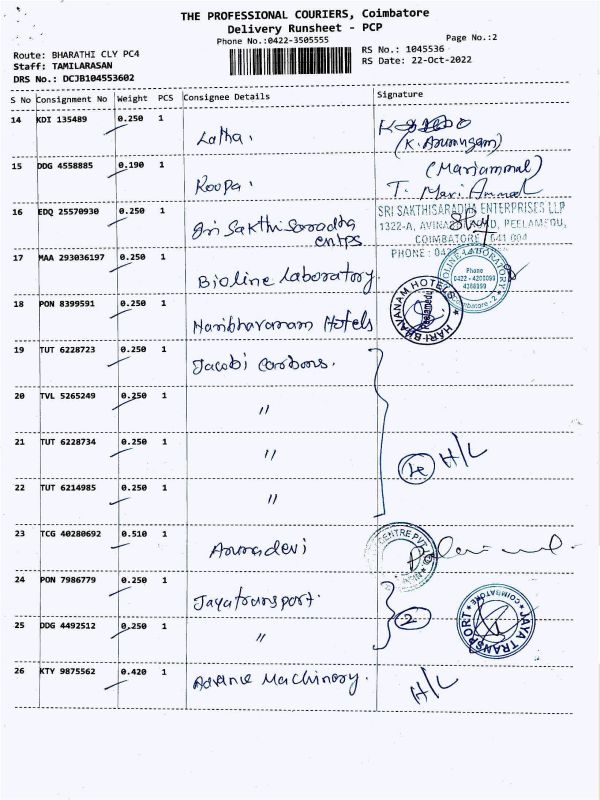 THE PROFESSIONAL COURIERS, Coimbatore
Delivery Runsheet - PCP
Phone No.:0422-3505555
Page No.:2
Route: BHARATHI CLY PC4
RS No.: 1045536
Staff: TAMILARASAN
RS Date: 22-Oct-2022
DRS No.: DCJB104553602
S No Consignment No Weight PCS Consignee Details Signature
14 KDI 135489 0.250 1 Latha.
(K. Arumugam)
15 DDG 4558885 0.190 1 Roopa. (Mariammal)
T. Mari Ammal
16 EDQ 25570930 0.250 1 Sri Sakthi Saradha
entps
SRI SAKTHISARADHA ENTERPRISES LLP
1322-A, PEELAMEDU,
COIMBATORE 641 004
PHONE : 042
17 MAA 293036197 0.250 1 Bioline Laboratory.
LABORATORY
Phone
0422 - 4200099
18 PON 8399591 0.250 1 Haribhavanam Hotels
HARI-BHAVANAM HOTELS
Peelamedu
19 TUT 6228723 0.250 1 Jacobi Carbons.
20 TVL 5265249 0.250 1 "
21 TUT 6228734 0.250 1 "
4 H/L
22 TUT 6214985 0.250 1 "
23 TCG 40280692 0.510 1 Arunadevi
CENTRE PVT
24 PON 7986779 0.250 1 Jayatransport.
2
JAYA TRANSPORT
COIMBATORE
25 DDG 4492512 0.250 1 "
26 KTY 9875562 0.420 1 Advance Machinory. H/L